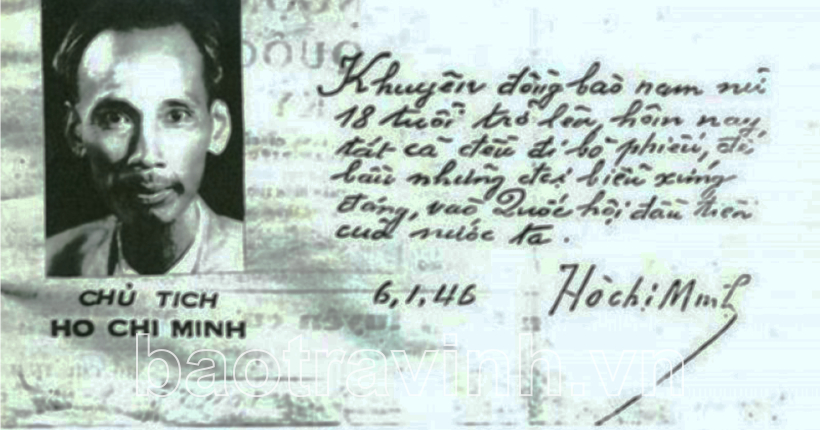 Khuyên đồng bào nam nữ
18 tuổi trở lên, hôm nay
tất cả đều đi bỏ phiếu, để
bầu những đại biểu xứng
đáng, vào Quốc hội đầu tiên
của nước ta.
6,1,46 Hồ Chí Minh
CHỦ TICH
HO CHI MINH
baotravinh.vn